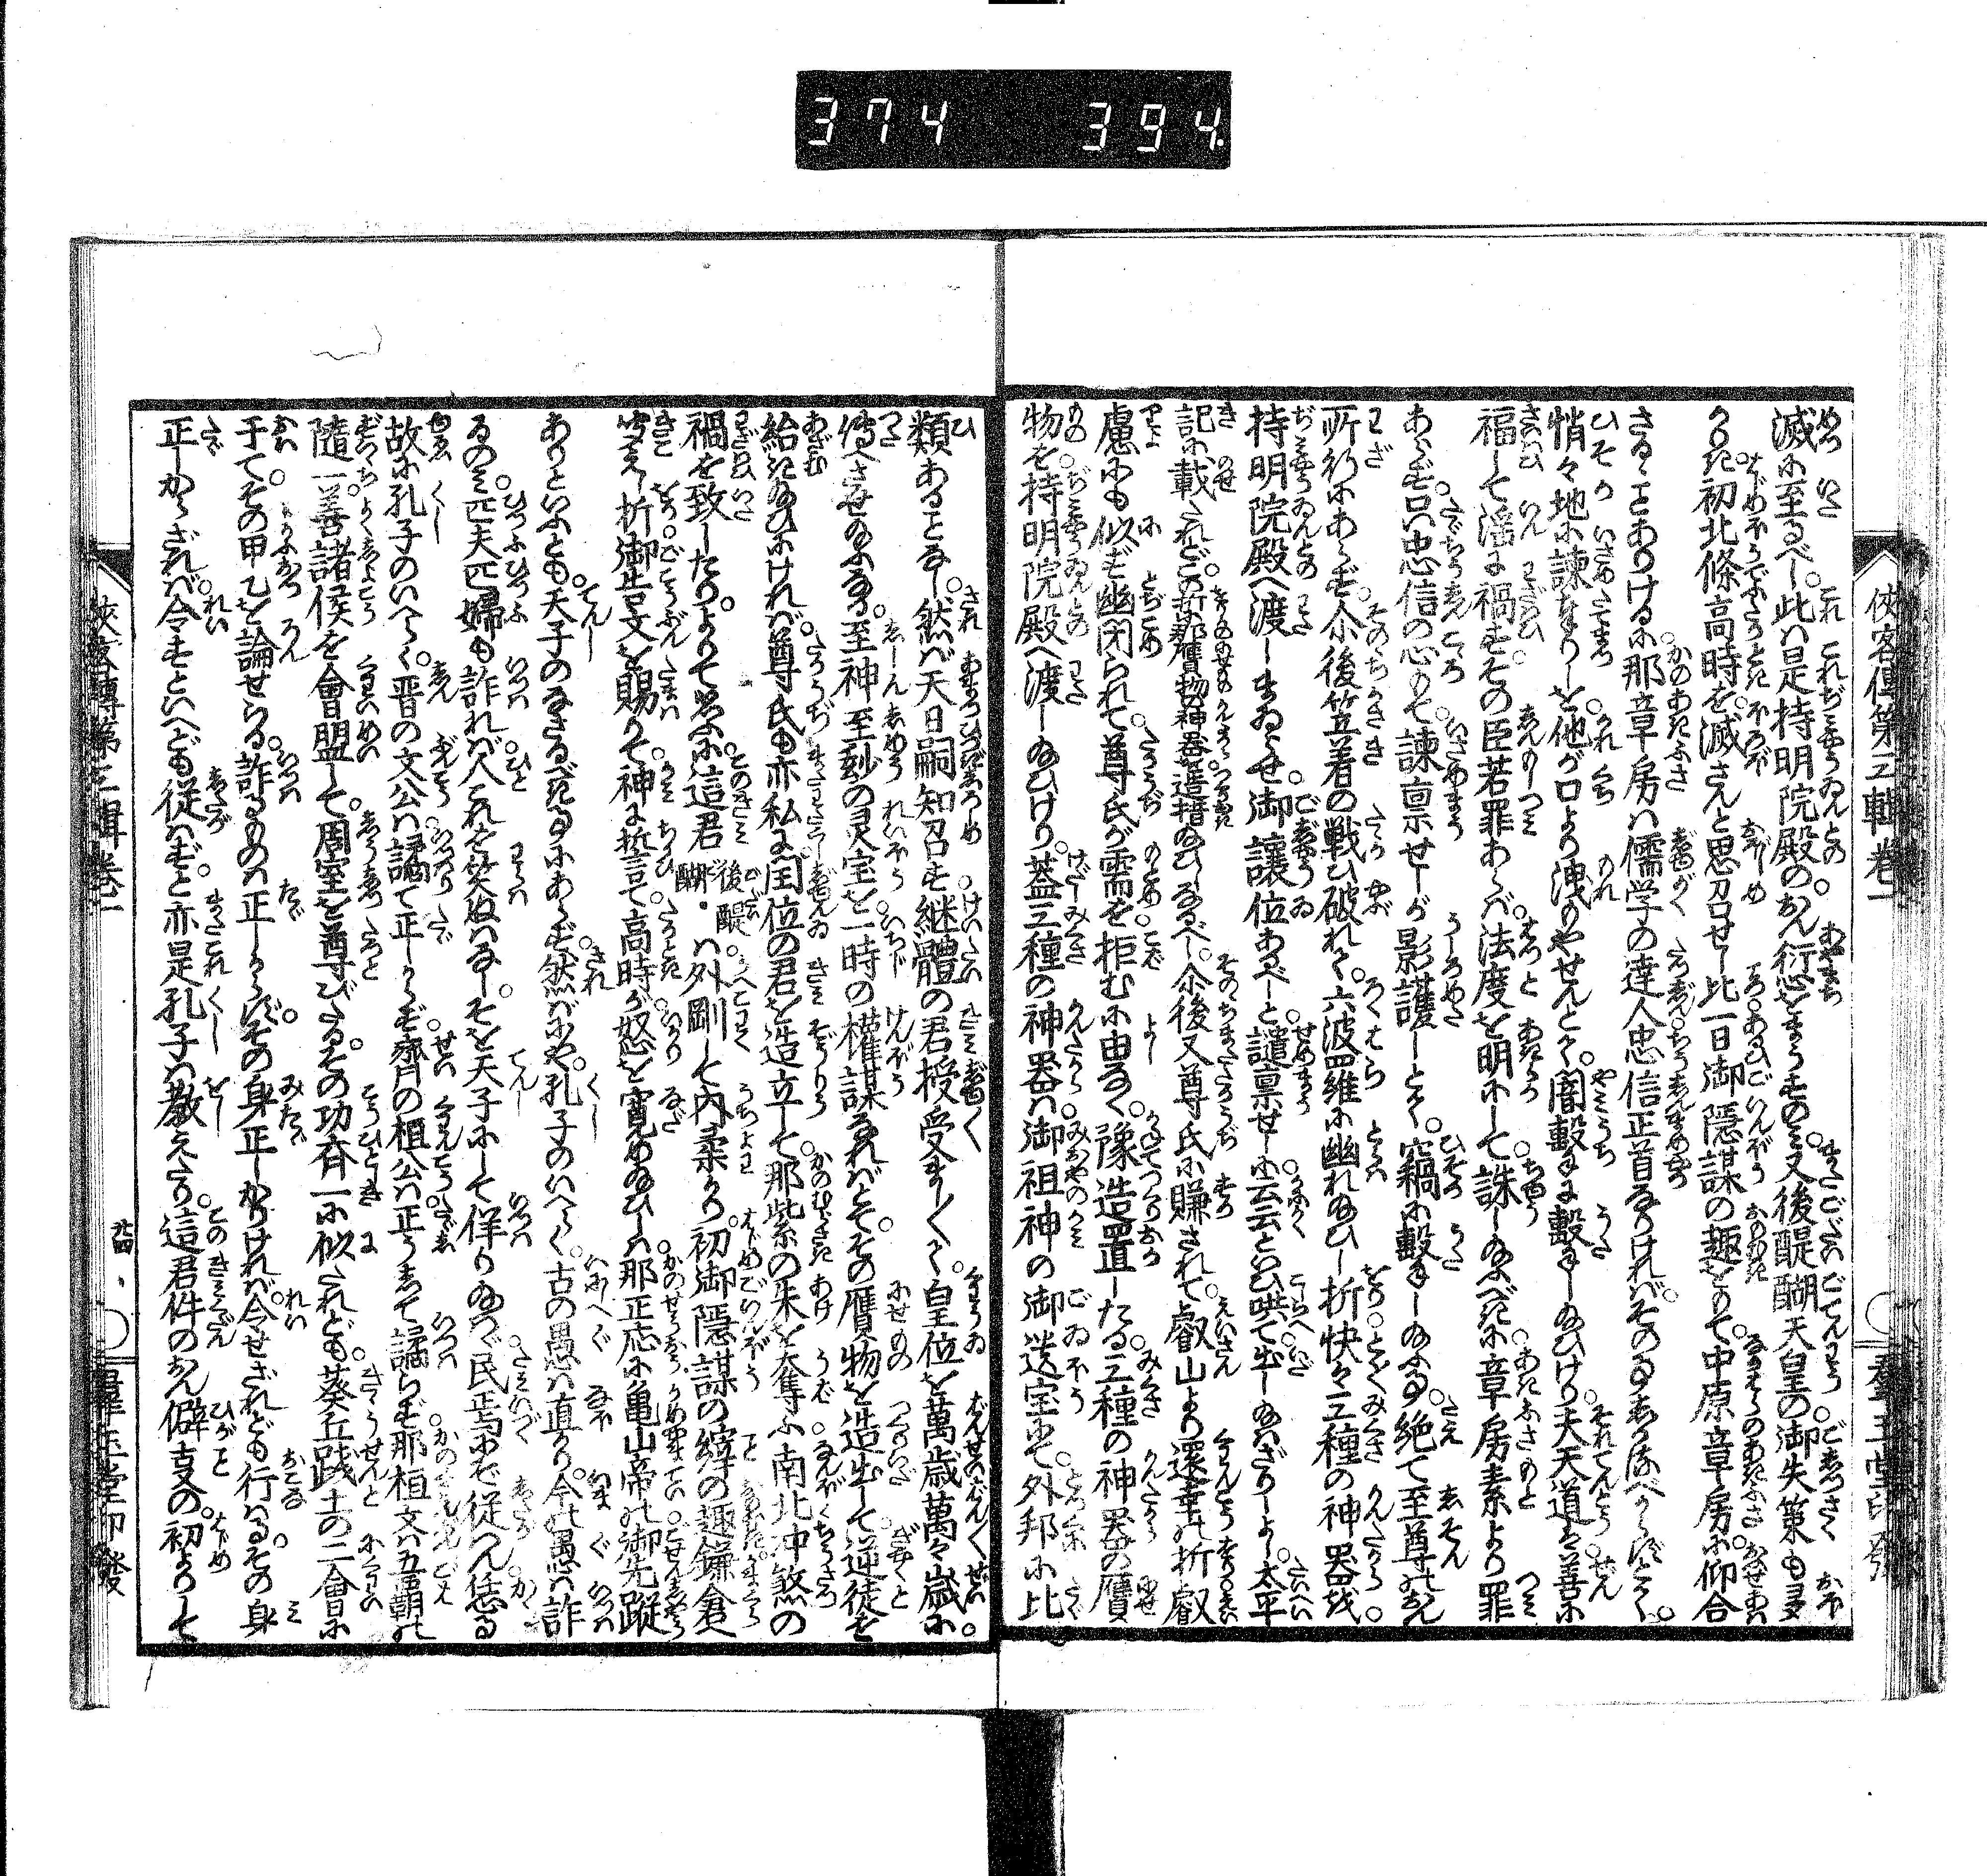 374 394
俠客傳第三輯卷一
滅に至るべし。此は是持明院殿のおん衍をまうすのみ。又後醍醐天皇の御失策も多
かりき。初北條高時を滅さんと思召せし比一日御隠謀の趣をもて。中原章房に仰合
さるゝことありけるに。那章房は儒学の達人忠信正首なりければ。そのなるまじきを
悄々地に諫まつりしを他が口より洩もやせんとて。闇撃に撃し給ひけり。夫天道は善に
福して淫に禍す。その臣若罪あらば。法度を明にして。誅し給ふべきに。章房素より罪
あらず。只忠信の心もて。諫稟せしが影護しとて。竊に撃し給ふ事。絶て至尊のおん
所行にあらず。尒後笠着の戦ひ破れて。六波羅に幽れ給ひし折。快々三種の神器を
持明院殿へ渡しまゐらせ。御譲位あるべしと譴稟せしに。云云といひ哄て。出し給はざりしよし。太平
記に載たれど。
慮にも似ず。幽閉られて。尊氏が需を拒むに由なく。豫造置したる。三種の神器の贋
物を。持明院殿へ渡し給ひけり。蓋三種の神器は。御祖神の御遺宝にて。外邦に比
類あることなし。然ば天日嗣知召す。継體の君授受まし〳〵て。皇位を萬歳萬々歳に。
傳へさせ給ふなる。至神至妙の灵宝を。一時の權謀なればとて。その贋物を造出して。逆徒を
給き給ひにければ。尊氏も亦私に閏位の君を造立して。那紫の朱を奪ふ。南北沖煞の
禍を致したり。よりて思ふに。這君 後醍醐 は。外剛して内柔かり。初御隠謀の縡の趣。鎌倉
聞えし折。御告文を賜りて。神に誓言て。高時が怒を寛め給ひしは。那正応に亀山帝の御先蹤
ありといふとも。天子のなさるべき事にあらず。然ばにや。孔子のいへらく。古の愚は直かり。今の愚は詐
るのみ。匹夫匹婦も詐れば。人これを笑ぬはなし。そを天子にして佯り給はゞ。民正与せず従へん恁る
故に孔子のいへらく。晋の文公は譎て正しからず。齊の桓公は正うして譎らず。那桓文は五覇の
隨一。善諸侯を會盟して。周室を尊びたる。その功齊一に似たれども。葵丘践土の二會に
于て。その甲乙を論せらる。詐るものの正しからず。その身正しかりければ。令せざれども行はる。その身
正しからざれば。令すといへども従はず。と亦是孔子は教えたり。這君件のおん僻事の。初よりして
俠客傳第三輯卷一
廿四
羣玉堂印發